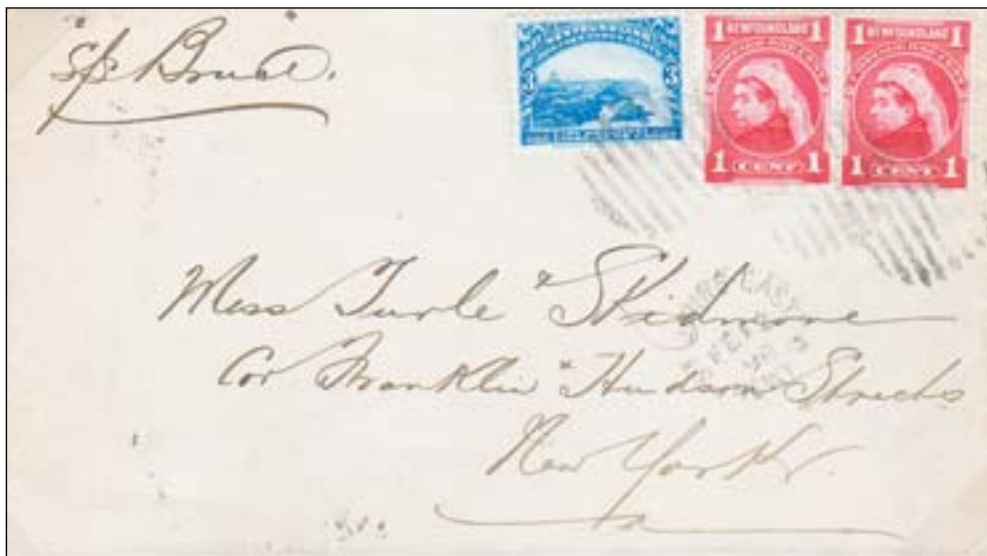 "S/S Bruce".
NEWFOUNDLAND
3 3
1 NEWFOUNDLAND 1
1 CENT 1
1 NEWFOUNDLAND 1
1 CENT 1
Mess Turle & Skidmore
Cor Franklin & Hudson Streets
New York